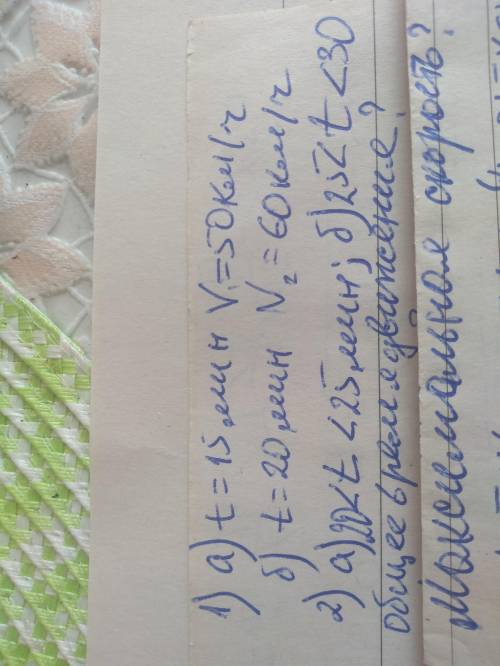 1) а) t = 15 мин V₁ = 50 км/ч
б) t = 20 мин V₂ = 60 км/ч
2) а) 20 < t < 25 мин; б) 25 < t < 30
Общее время движения?
Максимальная скорость?